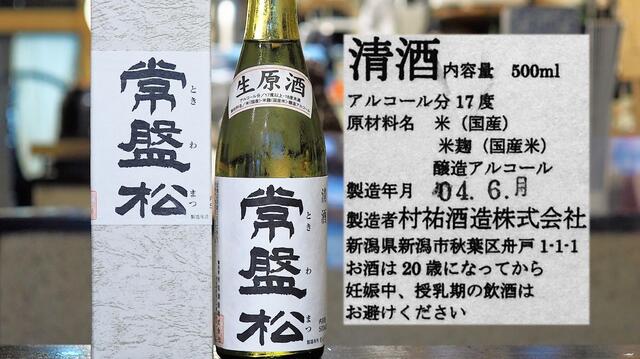 常盤松
ときわまつ
製造年月
生原酒
清酒
常盤松
ときわまつ
清酒 内容量 500ml
アルコール分 17度
原材料名 米（国産）
米麹（国産米）
醸造アルコール
製造年月 04.6.月
製造者 村祐酒造株式会社
新潟県新潟市秋葉区舟戸 1-1-1
お酒は20歳になってから
妊娠中、授乳期の飲酒は
お避けください